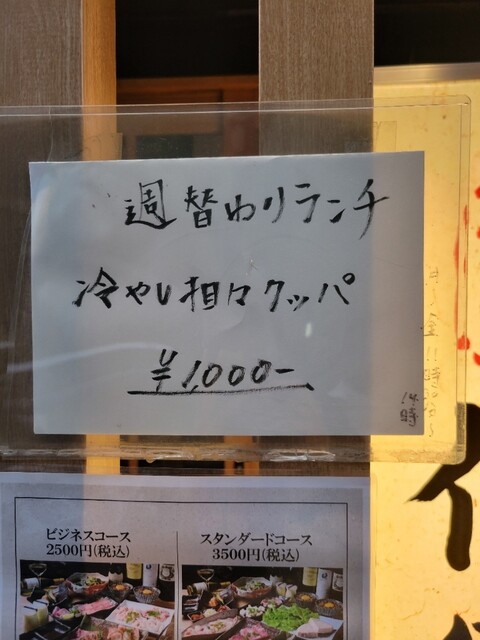 週替わりランチ
冷やし担々クッパ
¥1,000-
14
時
ビジネスコース
2500円(税込)
スタンダードコース
3500円(税込)